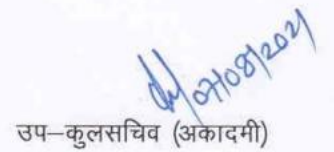 07/08/2021
उप–कुलसचिव (अकादमी)